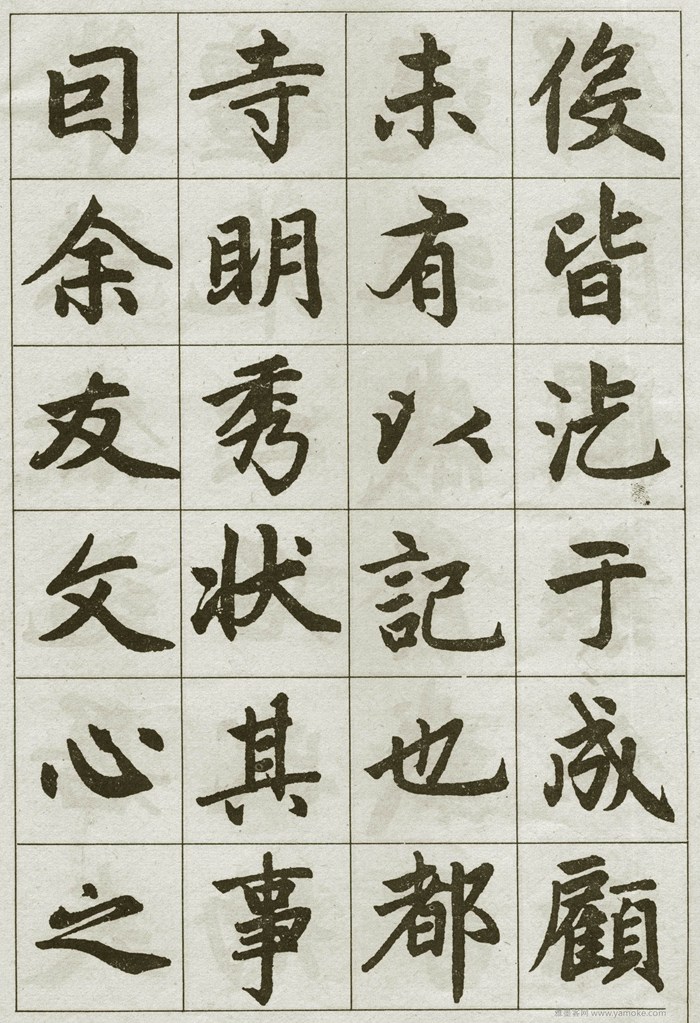 伇皆汔于成顧
未有以記也都
寺明秀狀其事
囙余友文心之
雅墨客网 www.yamoke.com